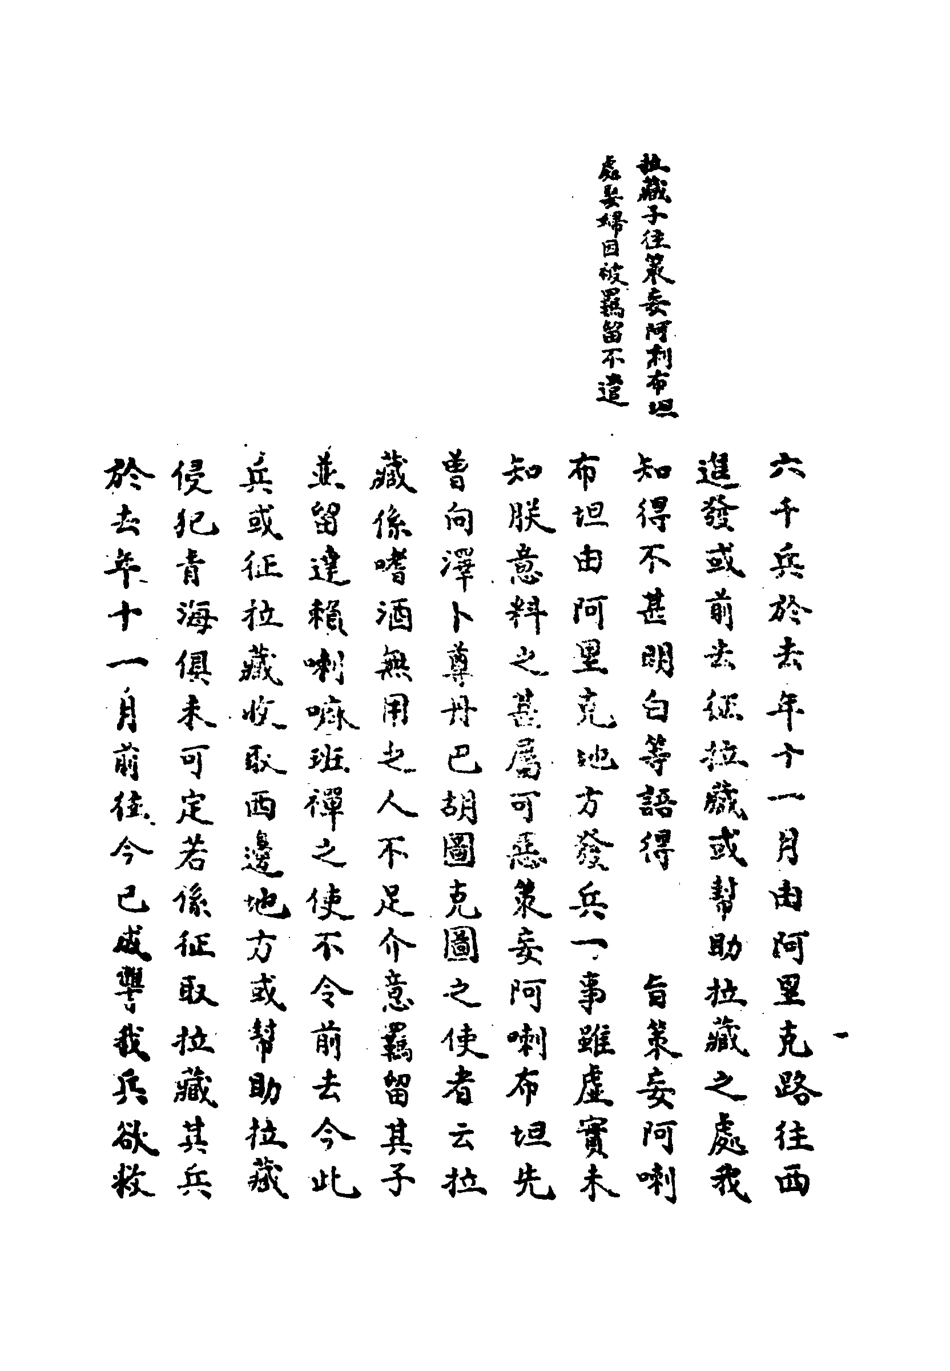 拉藏子往策妄阿喇布坦
處娶婦因被羈留不遣
六千兵於去年十一月由阿里克路往西
進發或前去征拉藏或幫助拉藏之處我
知得不甚明白等語得　旨策妄阿喇
布坦由阿里克地方發兵一事雖虛實未
知朕意料之甚屬可惡策妄阿喇布坦先
曽向澤卜尊丹巴胡圖克圖之使者云拉
藏係嗜酒無用之人不足介意羈留其子
並留達賴喇嘛班禪之使不令前去今此
兵或征拉藏收取西邊地方或幫助拉藏
侵犯青海俱未可定若係征取拉藏其兵
於去年十一月前往今已成讐我兵欲救